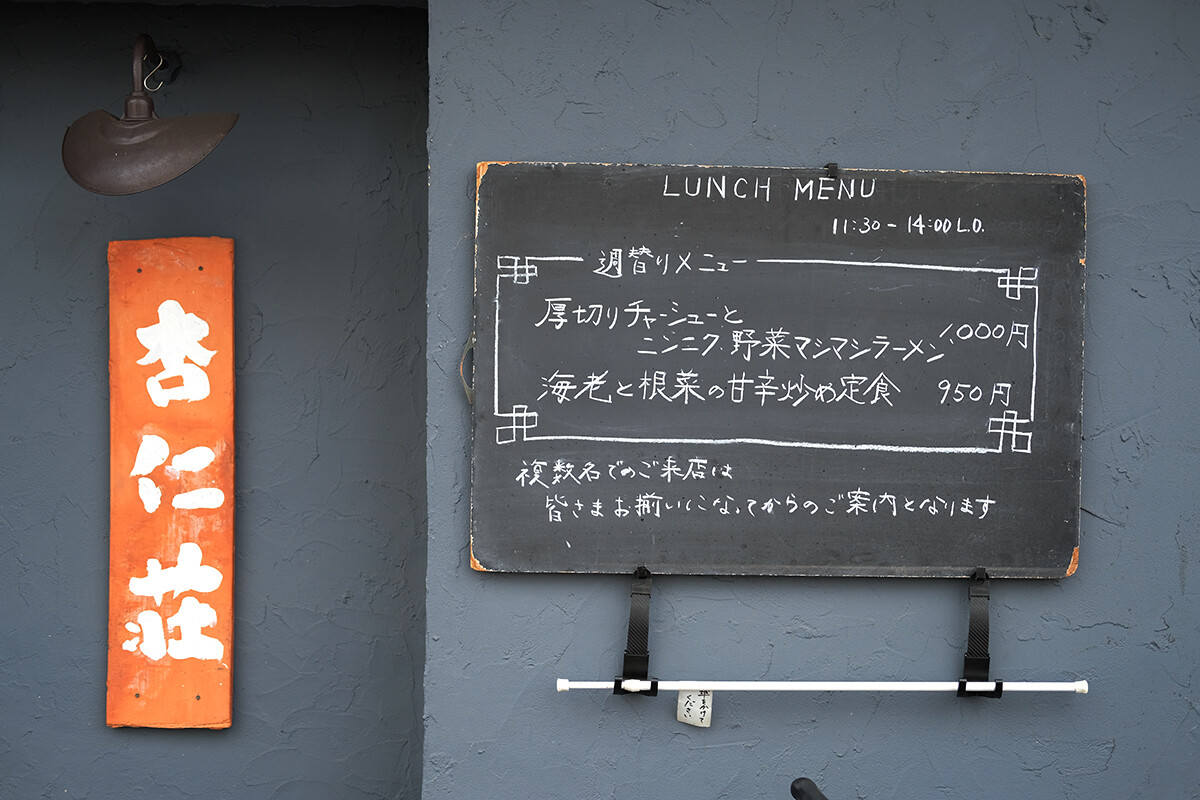 杏仁荘
LUNCH MENU
11:30 - 14:00 L.O.
週替りメニュー
厚切りチャーシューと
ニンニク野菜マシマシラーメン 1,000円
海老と根菜の甘辛炒め定食 950円
複数名でのご来店は
皆さまお揃いになってからのご案内となります
傘をかけて
ください